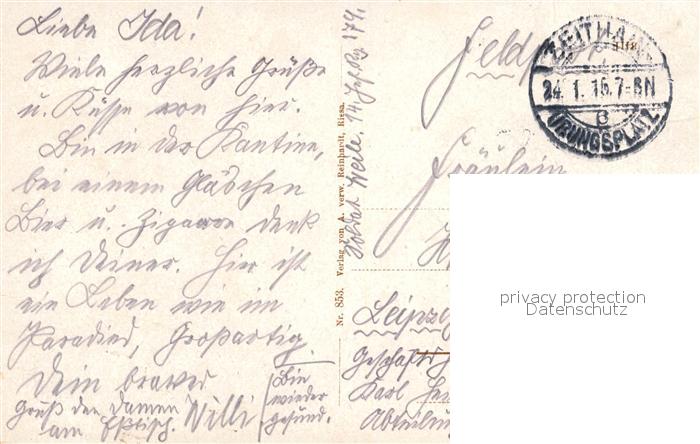 Liebe Ida!
Viele herzliche Grüße
u. Küsse von hier.
Bin in der Kantine,
bei einem Gläschen
Bier u. Zigarre denk
ich Deiner. Hier ist
ein Leben wie im
Paradies, Großartig.
Dein braver
Willi
Gruß den Damen
am Eßtisch.
Bin
wieder
gesund.
Nr. 853. Verlag von A. verw. Reinhardt, Riesa.
Soldat
ZEITHAIN
24.1.15.7-8N
B
ÜBUNGSPLATZ
Fräulein
Leipzig
Geschäfts
Karl
Abteilun
privacy protection
Datenschutz